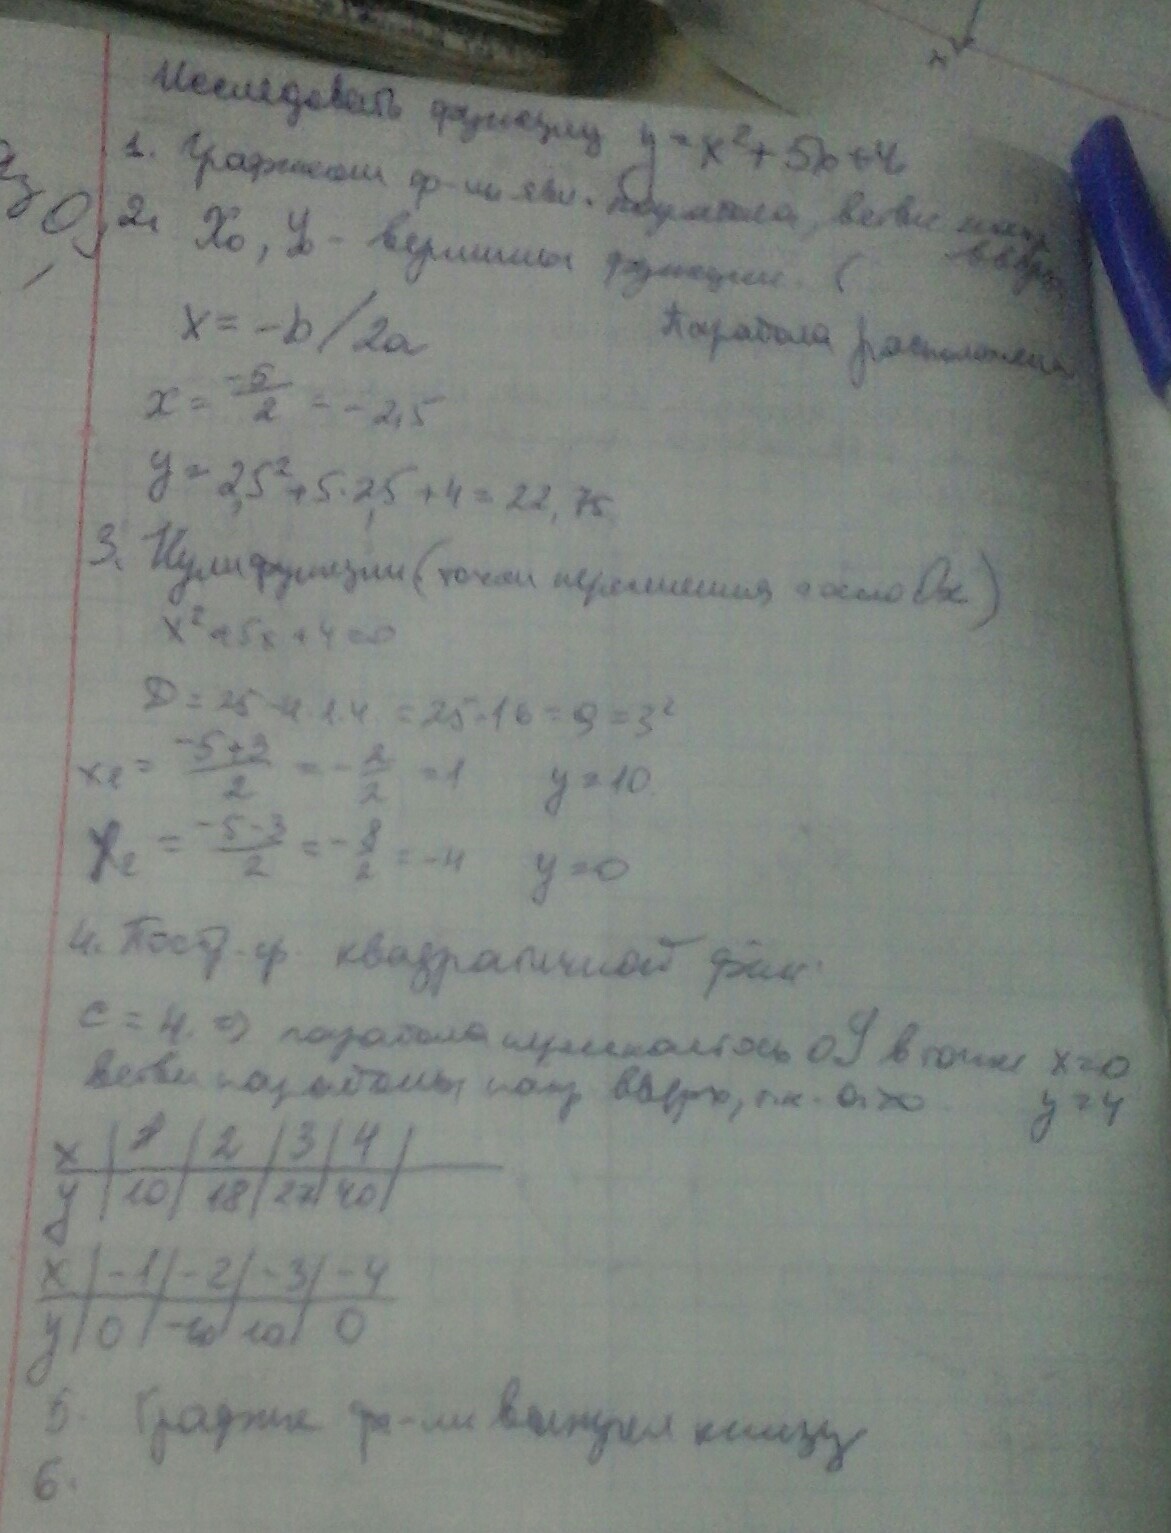 Исследовать функцию y = x² + 5x + 4
1. Графиком ф-ии явл. парабола, ветви напр. вверх
2. X₀, Y₀ - вершины функции. (
Парабола расположена
x = -b/2a
x = -5/2 = -2,5
y = 2,5² + 5·2,5 + 4 = 22,75
3. Нули функции (точки пересечения с осью Ox)
x² + 5x + 4 = 0
D = 25 - 4·1·4 = 25 - 16 = 9 = 3²
x₂ = -5+3/2 = -2/2 = 1 y = 10
x₂ = -5-3/2 = -8/2 = -4 y = 0
4. Постр. гр. квадратичной ф-ии.
C = 4. => парабола пересекается OY в точке x = 0
ветви параболы напр вверх, т.к. a>0 y = 4
x | 1 | 2 | 3 | 4 |
y | 10 | 18 | 27 | 40 |
x | -1 | -2 | -3 | -4
y | 0 | | | 0
5. График ф-ии книзу
6.